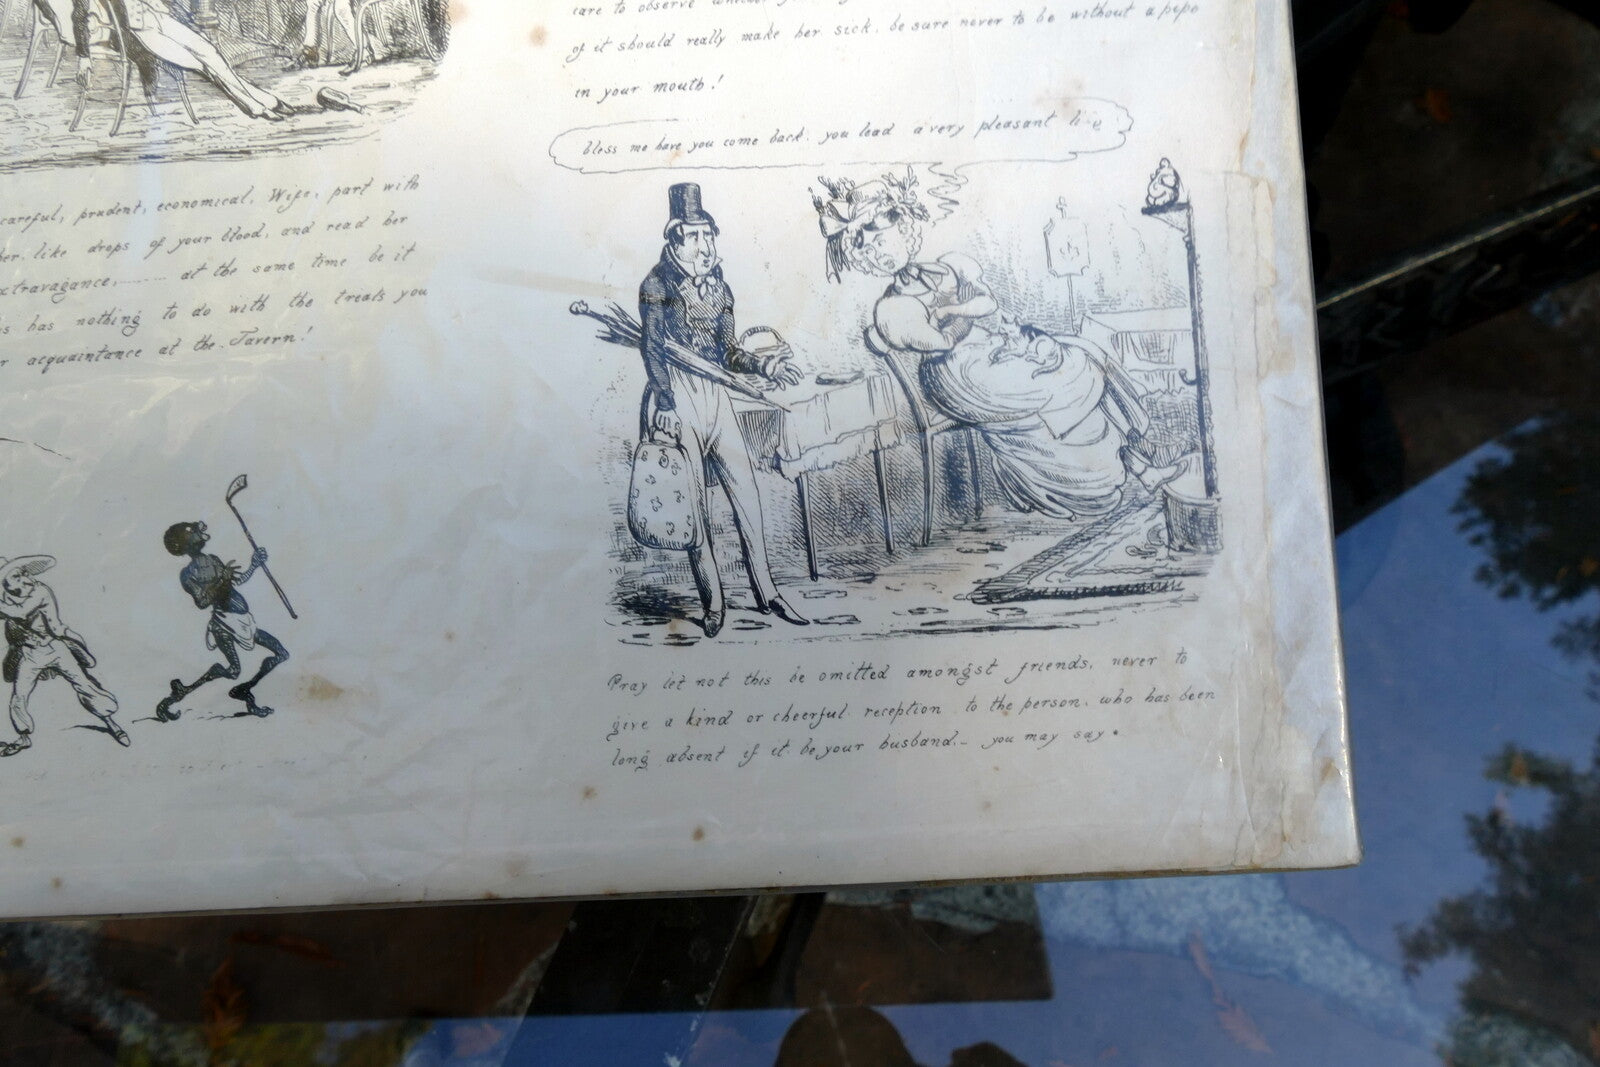 careful, prudent, economical, Wife, part with
her like drops of your blood, and read her
extravagance, at the same time be it
has nothing to do with the treats you
acquaintance at the Tavern!
care to observe
of it should really make her sick, be sure never to be without a pipe
in your mouth!
bless me have you come back. you lead a very pleasant
Pray let not this be omitted amongst friends, never to
give a kind or cheerful reception to the person, who has been
long absent if it be your husband.- you may say.